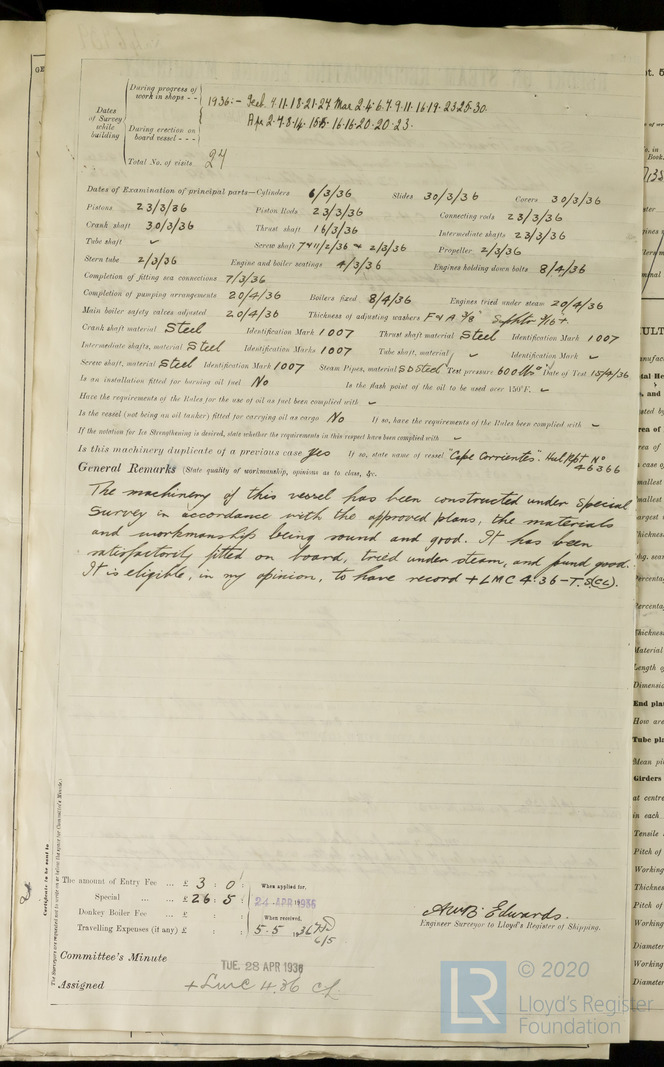 During progress of work in shops - - 1936:- Feb. 4.11.18.21.24 Mar 2.4.6.7.9.11.16.19.23.25.30.
Dates of Survey while building
During erection on board vessel - - - Apr 2.7.8.14. 16.16.20.20.23.
Total No. of visits 24
Dates of Examination of principal parts—Cylinders 6/3/36 Slides 30/3/36 Covers 30/3/36
Pistons 23/3/36 Piston Rods 23/3/36 Connecting rods 23/3/36
Crank shaft 30/3/36 Thrust shaft 16/3/36 Intermediate shafts 23/3/36
Tube shaft ✓ Screw shaft 7 & 11/2/36 & 2/3/36 Propeller 2/3/36
Stern tube 2/3/36 Engine and boiler seatings 4/3/36 Engines holding down bolts 8/4/36
Completion of fitting sea connections 7/3/36
Completion of pumping arrangements 20/4/36 Boilers fixed 8/4/36 Engines tried under steam 20/4/36
Main boiler safety valves adjusted 20/4/36 Thickness of adjusting washers F & A 3/8"
Crank shaft material Steel Identification Mark 1007 Thrust shaft material Steel Identification Mark 1007
Intermediate shafts, material Steel Identification Marks 1007 Tube shaft, material ✓ Identification Mark ✓
Screw shaft, material Steel Identification Mark 1007 Steam Pipes, material SD Steel Test pressure 600 lbs □" Date of Test 15/4/36
Is an installation fitted for burning oil fuel No Is the flash point of the oil to be used over 150°F. ✓
Have the requirements of the Rules for the use of oil as fuel been complied with ✓
Is the vessel (not being an oil tanker) fitted for carrying oil as cargo No If so, have the requirements of the Rules been complied with ✓
If the notation for Ice Strengthening is desired, state whether the requirements in this respect have been complied with ✓
Is this machinery duplicate of a previous case Yes If so, state name of vessel "Cape Corrientes". Hull Rpt No 46366
General Remarks (State quality of workmanship, opinions as to class, &c.
The machinery of this vessel has been constructed under Special
Survey in accordance with the approved plans, the materials
and workmanship being sound and good. It has been
satisfactorily fitted on board, tried under steam, and found good.
It is eligible, in my opinion, to have record +LMC 4.36 – T.S(CL).
The amount of Entry Fee ... £ 3 : 0 : When applied for,
Special ... ... £ 26 : 5 : 24 APR 1936
Donkey Boiler Fee ... £ : : When received,
Travelling Expenses (if any) £ : : 5.5.1936
6/5
Edwards.
Engineer Surveyor to Lloyd's Register of Shipping.
Committee's Minute TUE. 28 APR 1936
Assigned + LMC 4.36 CL
Certificate to be sent to
LR
© 2020
Lloyd's Register
Foundation